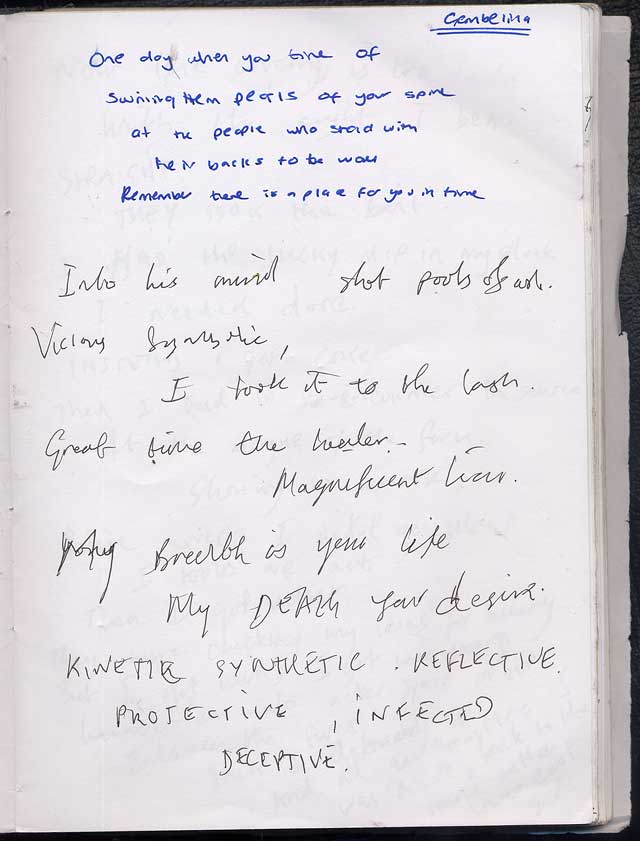 Gembelina
One day when you tire of
swining them pearls of your spine
at the people who stood with
their backs to the wall
Remember there is a place for you in time
Into his mind shot pools of ash.
Vicious Synthetic,
I took it to the lash.
Great time the healer.-
Magnificent liar.
My Breath is your life
My DEATH your desire.
KINETIK SYNTHETIC . REFLECTIVE.
PROTECTIVE , INFECTED
DECEPTIVE.